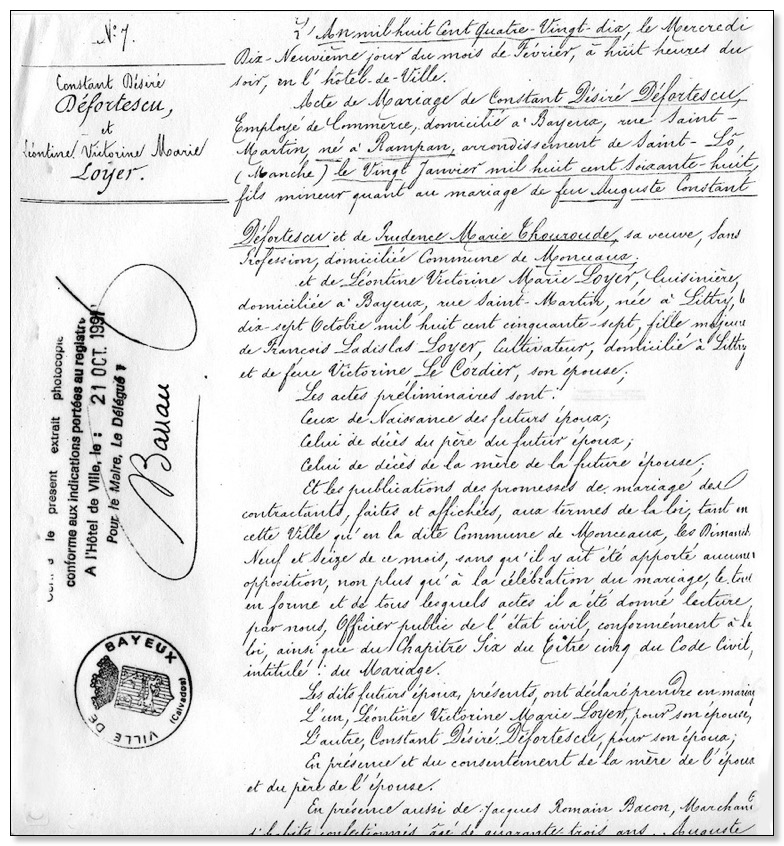 N° 7.
Constant Désiré
Défortescu,
et
Léontine Victorine Marie
Loyer.
L'An mil huit Cent Quatre-Vingt-dix, le Mercredi
Dix-Neuvième jour du mois de Février, à huit heures du
soir, en l'hôtel-de-Ville.
Acte de Mariage de Constant Désiré Défortescu,
Employé de Commerce, domicilié à Bayeux, rue Saint-
Martin, né à Rampan, arrondissement de Saint-Lô
(Manche) le Vingt Janvier mil huit cent Soixante-huit,
fils mineur quant au mariage de feu Auguste Constant
Défortescu et de Prudence Marie Thouroude, sa veuve, Sans
Profession, domiciliée Commune de Monceaux;
et de Léontine Victorine Marie Loyer, Cuisinière,
domiciliée à Bayeux, rue Saint-Martin, née à Littry, l
dix-sept Octobre mil huit cent cinquante-sept, fille majeure
de François Ladislas Loyer, Cultivateur, domicilié à Littry
et de feue Victorine Le Cordier, son épouse;
Les actes préliminaires sont:
Ceux de Naissance des futurs époux;
Celui de décès du père du futur époux;
Celui de décès de la mère de la future épouse;
Et les publications des promesses de mariage des
contractants, faites et affichées, aux termes de la loi, tant en
cette Ville qu'en la dite Commune de Monceaux, les Dimanch
Neuf et Seize de ce mois, sans qu'il y ait été apporté aucune
opposition, non plus qu'à la célébration du mariage, le tout
en forme et de tous lesquels actes il a été donné lecture
par nous, Officier public de l'état civil, conformément à la
loi, ainsi que du Chapitre Six du Titre cinq du Code Civil,
intitulé: du Mariage.
Les dits futurs époux, présents, ont déclaré prendre en mariag
L'un, Léontine Victorine Marie Loyer, pour son épouse,
L'autre, Constant Désiré Défortescu, pour son époux;
En présence et du consentement de la mère de l'époux
et du père de l'épouse.
En présence aussi de Jacques Romain Bacon, Marchand
d'habits confectionnés, âgé de quarante-trois ans, Auguste
le présent extrait photocopié
conforme aux indications portées au registre
A l'Hôtel de Ville, le : 21 OCT. 1991
Pour le Maire, Le Délégué
VILLE DE BAYEUX
(Calvados)